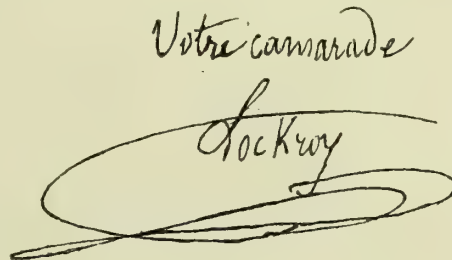 Votre camarade
Lockroy